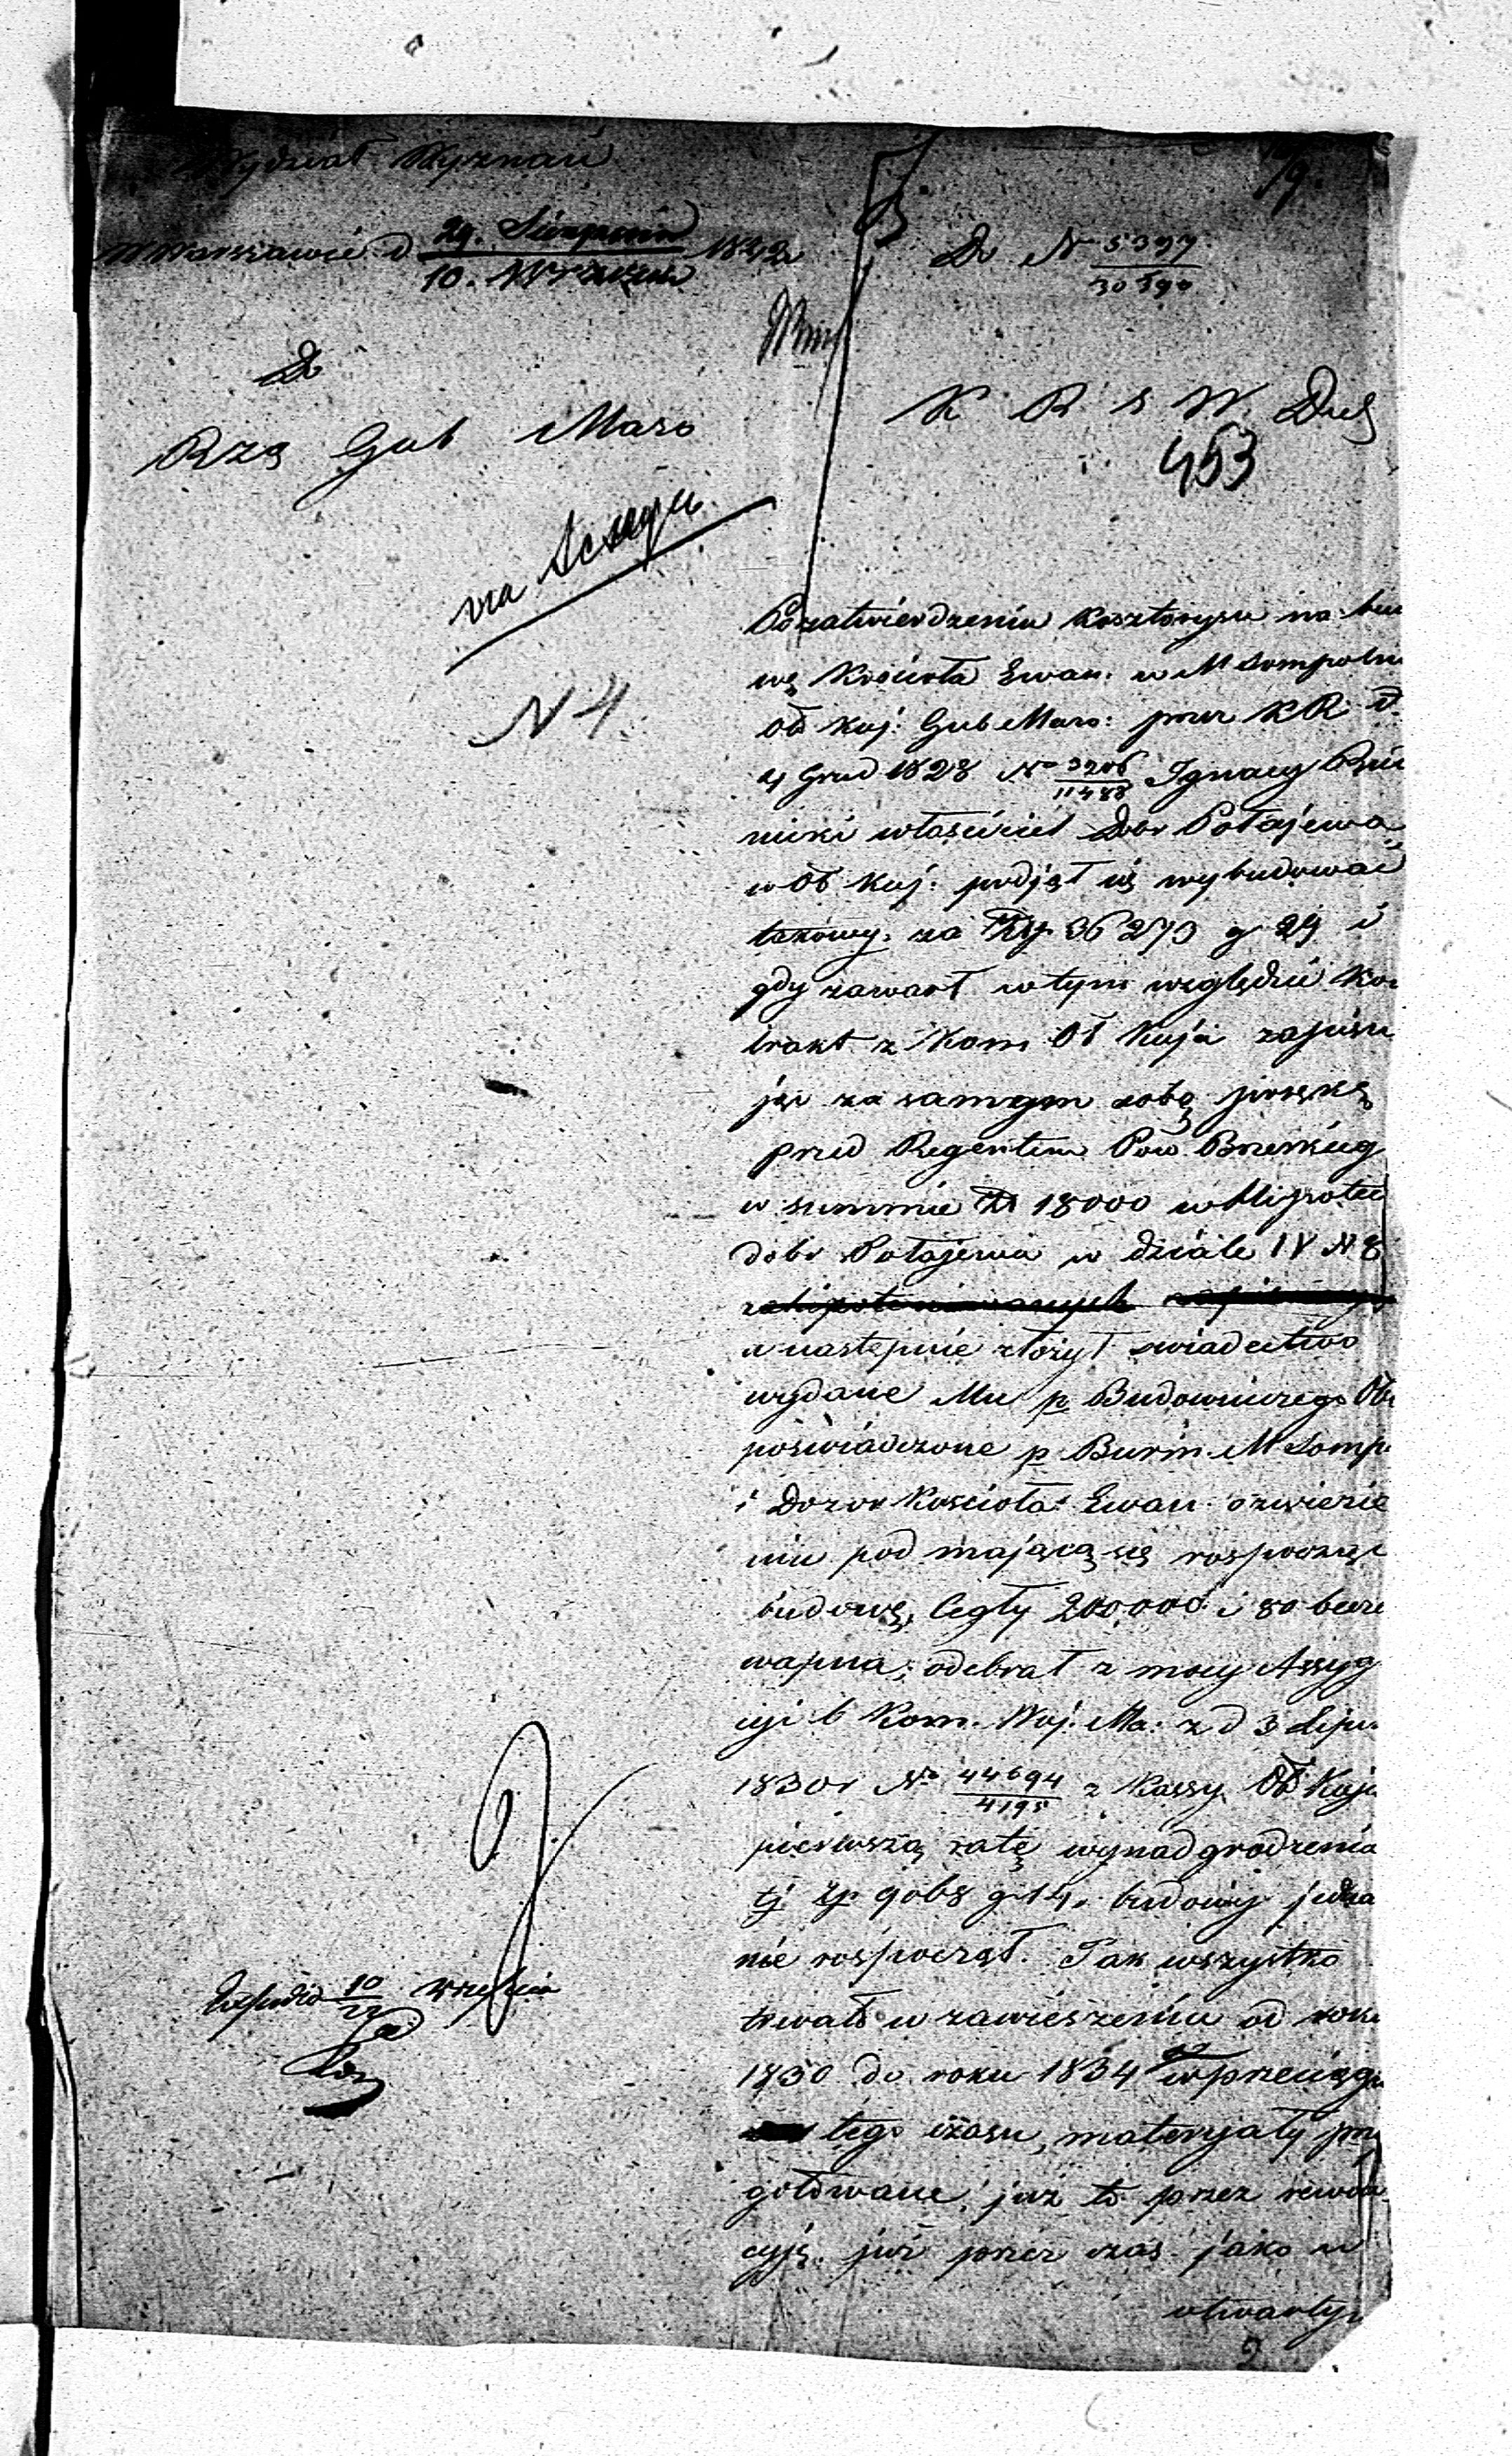 Wydział Wyznań
19.
w Warszawie d 29. Sierpnia / 10. Września 1842
Do N 5397 / 30590
Do
Rzą Gub Mazo
K R S W Duch
453
N 4.
Po zatwierdzeniu kosztorysu na bu
wę Kościoła Ewan: w M Sompoln
Ob Kuj: Gub Mazo: przez K R d
4 Grud 1828 No 3206 / 11488 Ignacy
właściciel Dobr Połajewa
w Ob Kuj: podjął się wybudować
takowy. za Złp 36 273 g 29 i
gdy zawarł w tym względzie kon
trakt z Kom Ob Kuja zapisu
jąc za samym sobą porękę
przed Regentem Pow Brzeskieg
w summie Zł 18000 w Hipotec
dobr Połajewa w dziale IV N 8
zahipotekowanych
a nastepnie złożył swiadectwo
wydane Mu p Budowniczego Ob
poświadczone p Burm. M Somp
i Dozor Kościoła Ewan. o zwiezie
niu pod mającą się rospocząć
budowę, Cegły 200,000 i 80 becze
wapna; odebrał z mocy Assyg
cyi b Kom. Woj. Ma: z d 3 Lipc
1830r No 44694 / 4195 z Kassy Ob Kuja
pierwszą ratę wynadgrodzenia
tj Złp 9068 g 14. budowy jedna
nie rospoczął. Tak wszystko
trwało w zawieszeniu od roku
1830 do roku 1834 w przeciągu
tego czasu, materyały przy
gotowane, już to przez rewolu
cyję. już przez czas jako w
otwarty
2
Expedio 10 / 22 Września